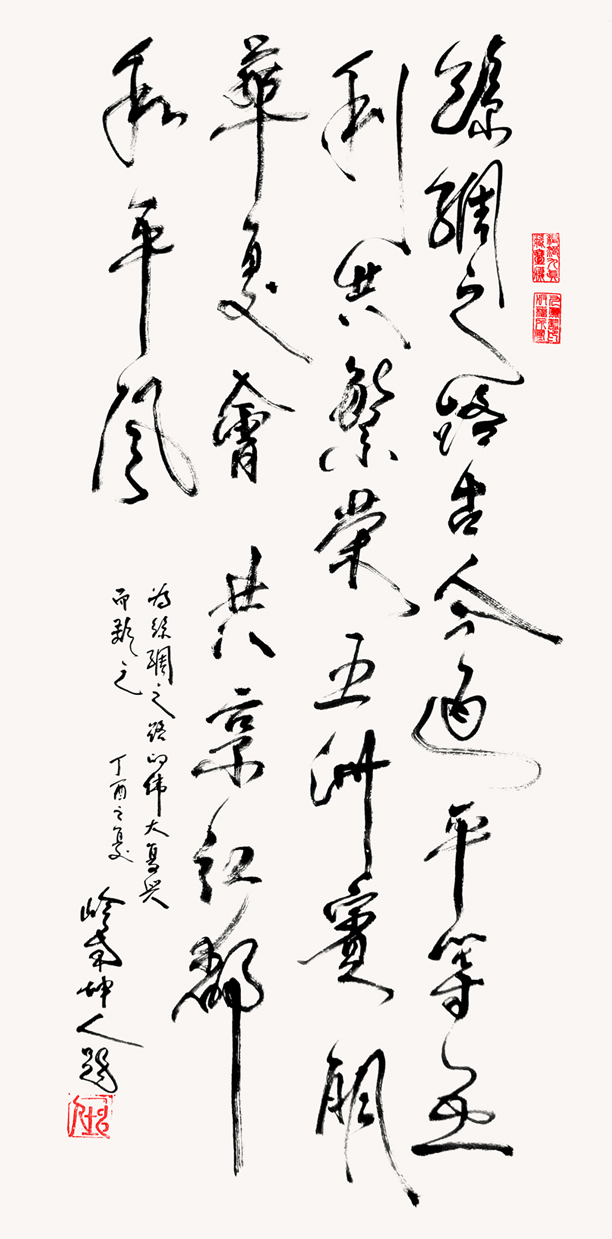 絲綢之路古今通平等互
利共繁榮五洲賓朋
華夏會共享紅鄰
和平風
为絲綢之路的伟大复兴
而歌之 丁酉之夏
坤人题